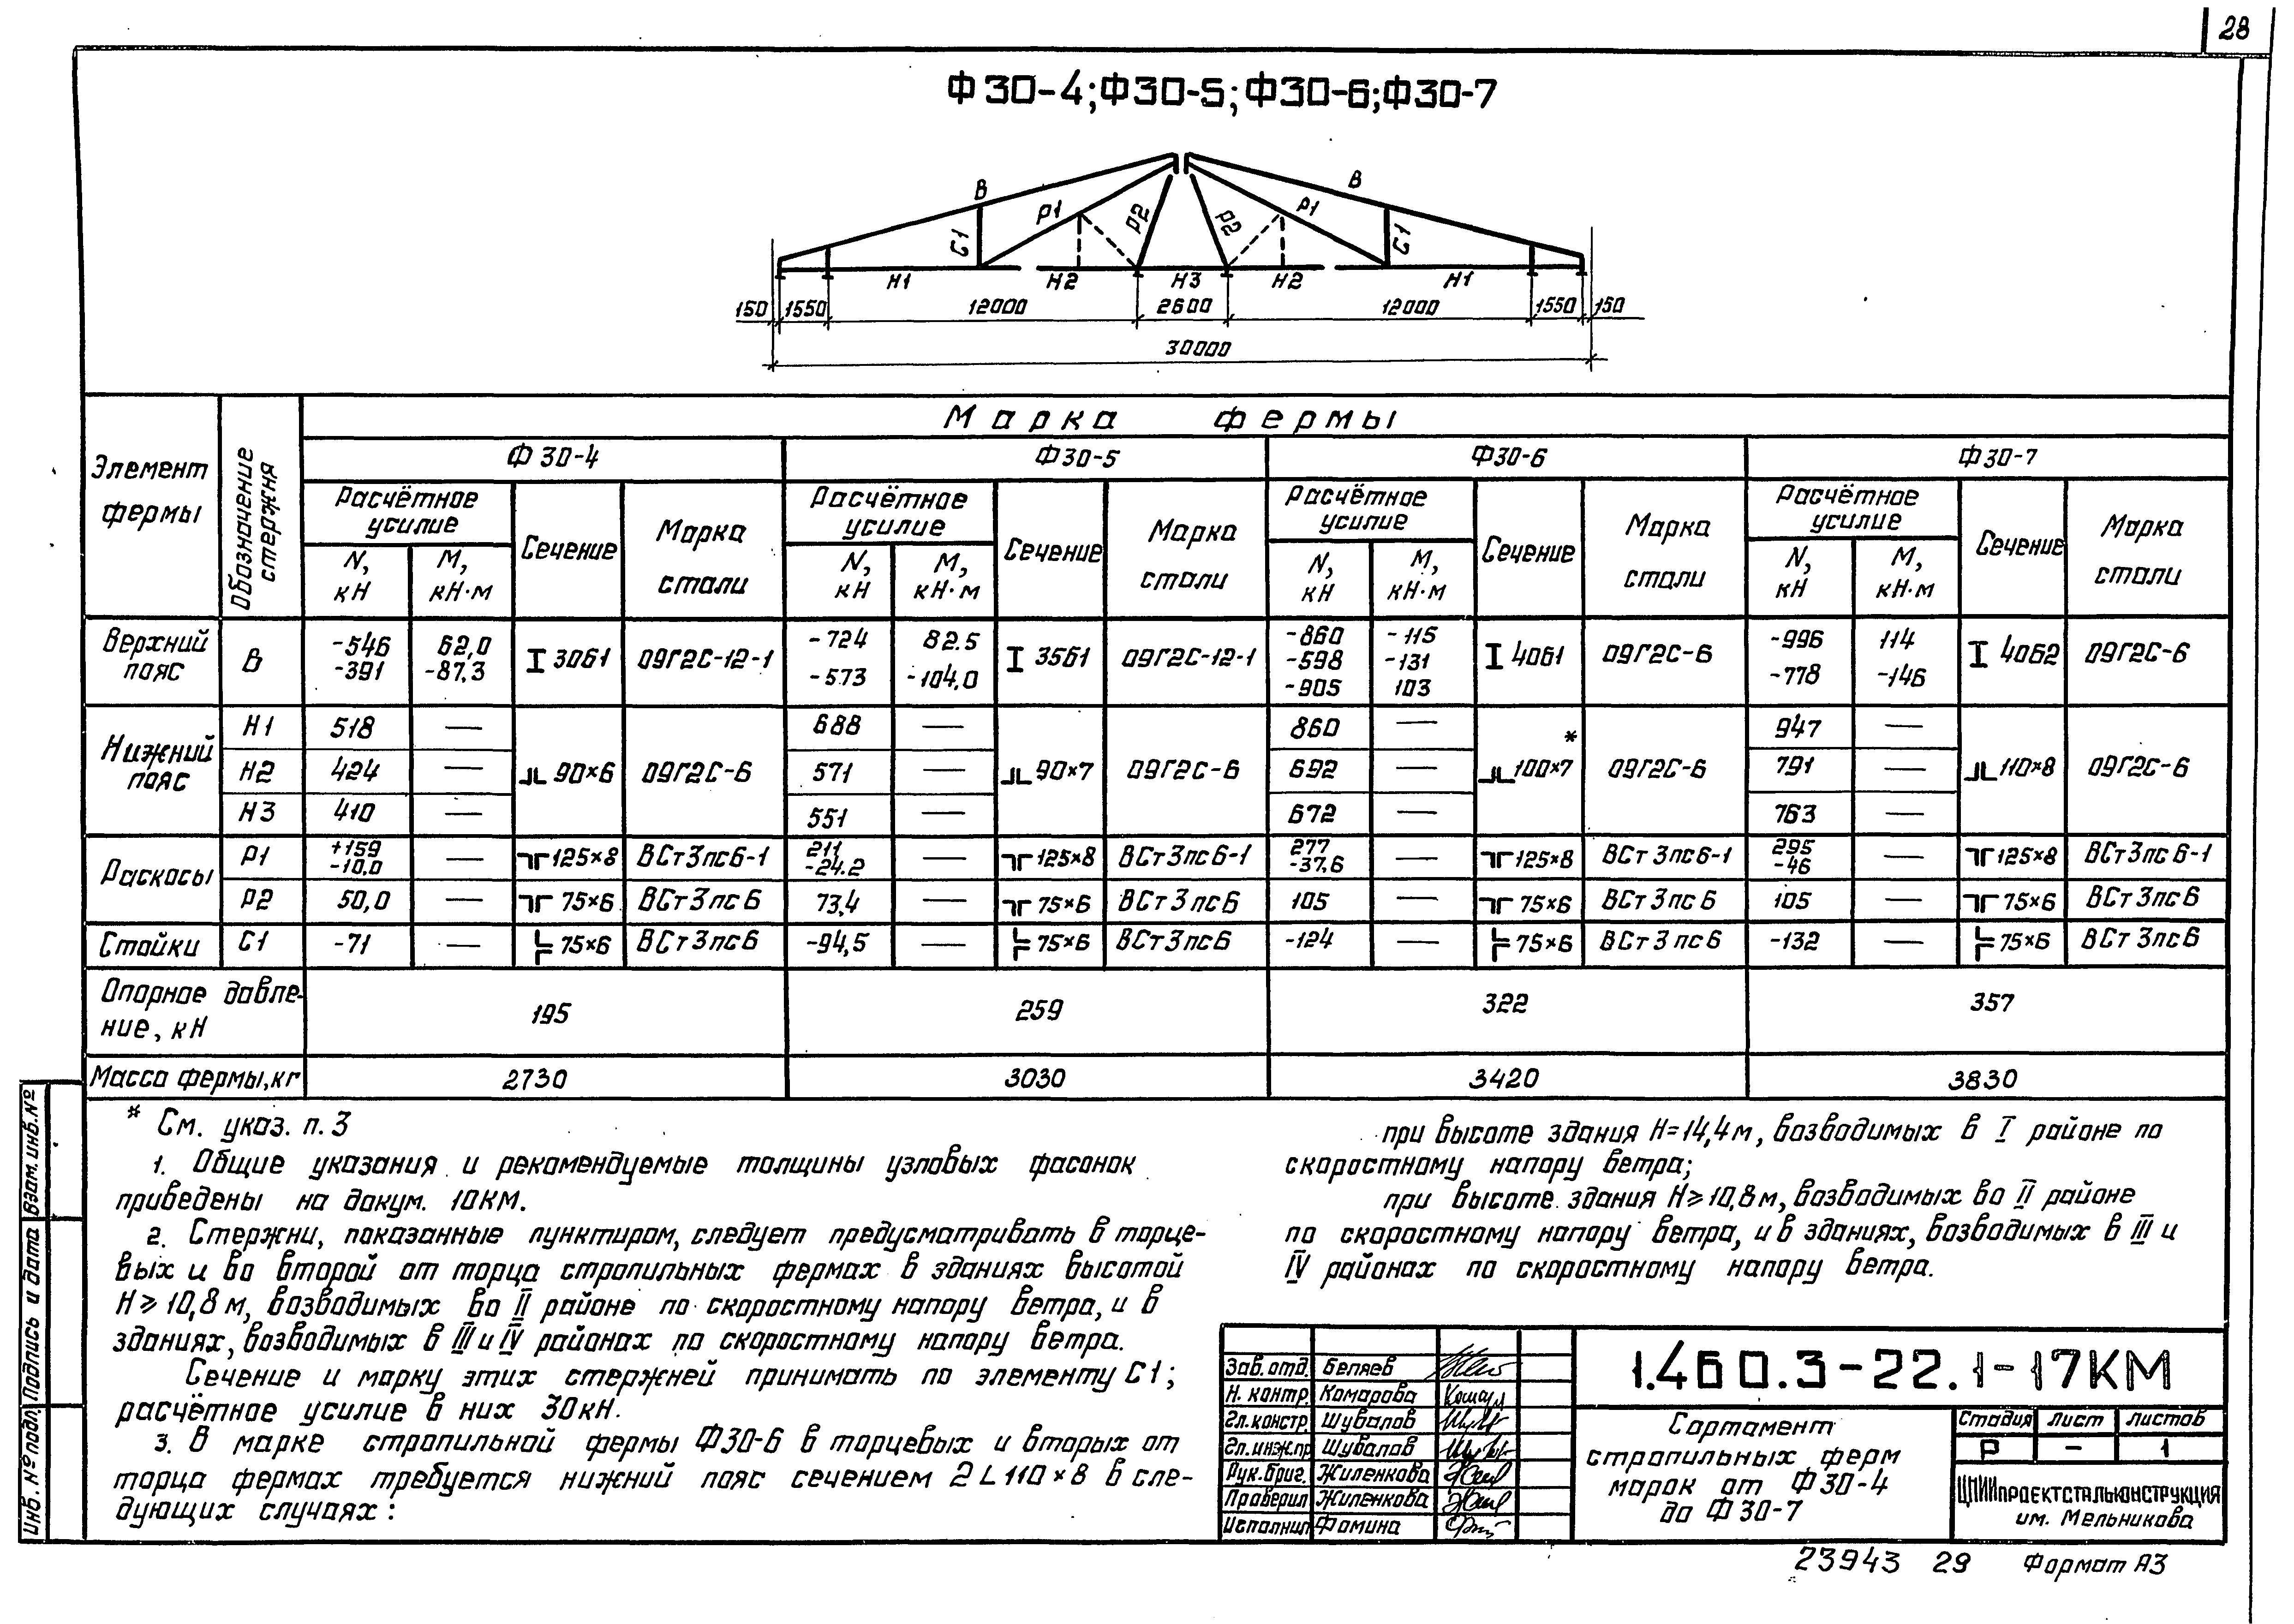 28
Ф30-4; Ф30-5; Ф30-6; Ф30-7
В В
С1 Р1 Р2 Р2 Р1 С1
Н1 Н2 Н3 Н2 Н1
150 1550 12000 2600 12000 1550 150
30000
Элемент фермы
Обозначение стержня
Марка фермы
Ф30-4 Ф30-5 Ф30-6 Ф30-7
Расчётное усилие Сечение Марка стали Расчётное усилие Сечение Марка стали Расчётное усилие Сечение Марка стали Расчётное усилие Сечение Марка стали
N, кН М, кН·м N, кН М, кН·м N, кН М, кН·м N, кН М, кН·м
Верхний пояс В -546 62,0 -391 -87,3 I 30Б1 09Г2С-12-1 -724 82.5 -573 -104,0 I 35Б1 09Г2С-12-1 -860 -115 -598 -131 -905 103 I 40Б1 09Г2С-6 -996 114 -778 -146 I 40Б2 09Г2С-6
Нижний пояс Н1 518 — 688 — 860 — 947 —
Н2 424 — 90×6 09Г2С-6 571 — 90×7 09Г2С-6 692 — * 100×7 09Г2С-6 791 — 110×8 09Г2С-6
Н3 410 — 551 — 672 — 763 —
Раскосы Р1 +159 -10,0 — 125×8 ВСт3пс6-1 211 -24.2 — 125×8 ВСт3пс6-1 277 -37,6 — 125×8 ВСт3пс6-1 295 -46 — 125×8 ВСт3пс6-1
Р2 50,0 — 75×6 ВСт3пс6 73,4 — 75×6 ВСт3пс6 105 — 75×6 ВСт3пс6 105 — 75×6 ВСт3пс6
Стойки С1 -71 — 75×6 ВСт3пс6 -94,5 — 75×6 ВСт3пс6 -124 — 75×6 ВСт3пс6 -132 — 75×6 ВСт3пс6
Опорное давле-
ние, кН 195 259 322 357
Масса фермы, кг 2730 3030 3420 3830
* См. указ. п. 3
1. Общие указания и рекомендуемые толщины узловых фасонок
приведены на докум. 10КМ.
2. Стержни, показанные пунктиром, следует предусматривать в торце-
вых и во второй от торца стропильных фермах в зданиях высотой
Н ≥ 10,8 м, возводимых во II районе по скоростному напору ветра, и в
зданиях, возводимых в III и IV районах по скоростному напору ветра.
Сечение и марку этих стержней принимать по элементу С1;
расчётное усилие в них 30кН.
3. В марке стропильной фермы Ф30-6 в торцевых и вторых от
торца фермах требуется нижний пояс сечением 2∟110×8 в сле-
дующих случаях:
при высоте здания Н=14,4м, возводимых в I районе по
скоростному напору ветра;
при высоте здания Н≥10,8м, возводимых во II районе
по скоростному напору ветра, и в зданиях, возводимых в III и
IV районах по скоростному напору ветра.
Зав. отд. Беляев
Н. контр. Комарова
Гл. констр. Шувалов
Гл. инж.пр Шувалов
Рук. бриг. Жиленкова
Проверил Жиленкова
Исполнил Фомина
1.460.3-22.1-17КМ
Сортамент
стропильных ферм
марок от Ф30-4
до Ф30-7
Стадия Лист Листов
Р — 1
ЦНИИпроектстальконструкция
им. Мельникова
Инв. № подл. Подпись и дата Взам. инв. №
23943 29 Формат А3